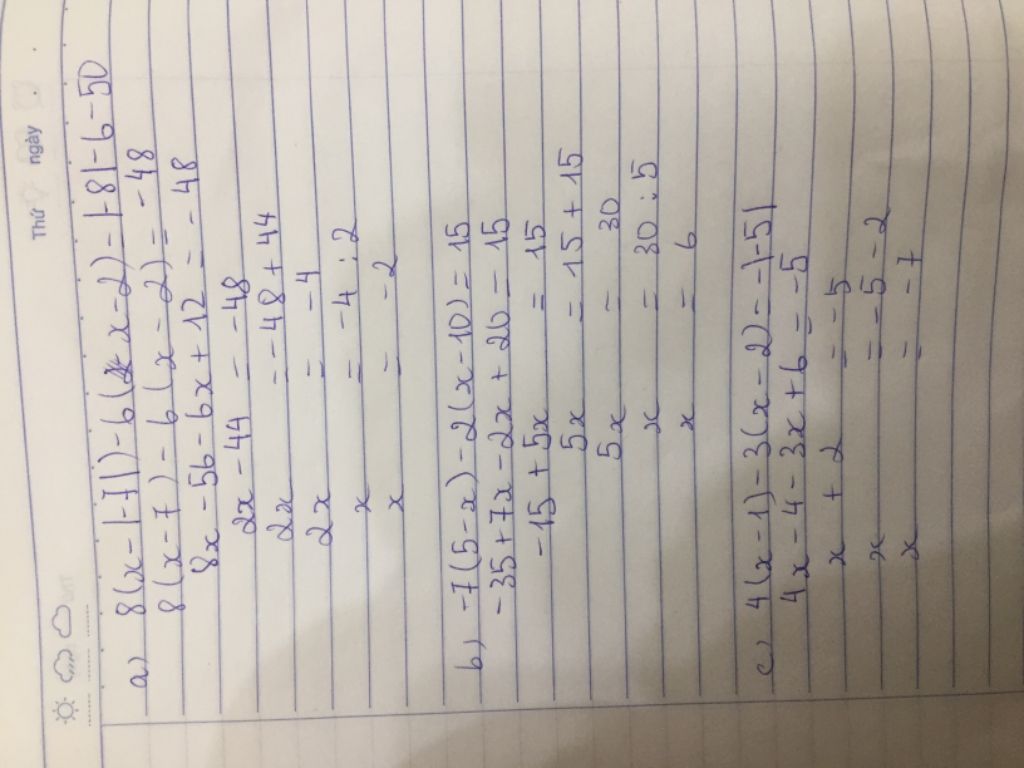 Thứ ngày
a) 8(x-|-7|)-6(x-2)=|-8|-6-50
8(x-7)-6(x-2)=-48
8x-56-6x+12=-48
2x-44=-48
2x=-48+44
2x=-4
x=-4:2
x=-2
b) -7(5-x)-2(x-10)=15
-35+7x-2x+20=15
-15+5x=15
5x=15+15
5x=30
x=30:5
x=6
c) 4(x-1)-3(x-2)=-|-5|
4x-4-3x+6=-5
x+2=-5
x=-5-2
x=-7